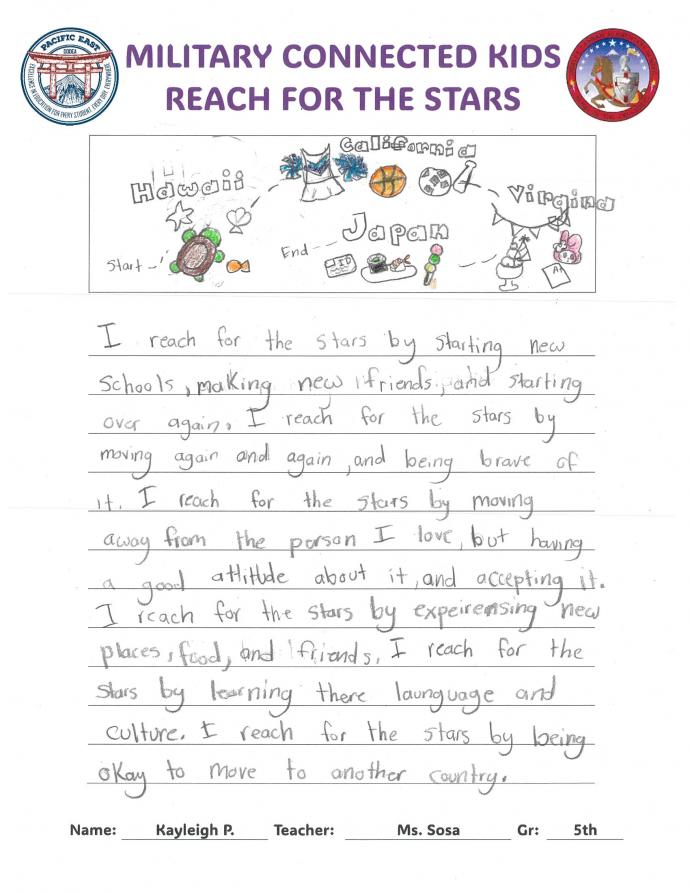 PACIFIC EAST
DODEA
EXCELLENCE IN EDUCATION FOR EVERY STUDENT, EVERY DAY, EVERYWHERE
MILITARY CONNECTED KIDS
REACH FOR THE STARS
California
Hawaii
Virginia
Japan
Start
End
ID
A+
I reach for the stars by starting new
schools, making new friends, and starting
over again. I reach for the stars by
moving again and again, and being brave of
it. I reach for the stars by moving
away from the person I love, but having
a good attitude about it, and accepting it.
I reach for the stars by expeirensing new
places, food, and friends. I reach for the
stars by learning there launguage and
culture. I reach for the stars by being
okay to move to another country.
Name: Kayleigh P. Teacher: Ms. Sosa Gr: 5th